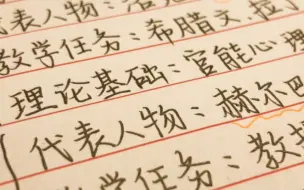 代表人物：洛
教学任务：希腊文、拉丁
理论基础：官能心理
代表人物：赫尔巴
学任务：教